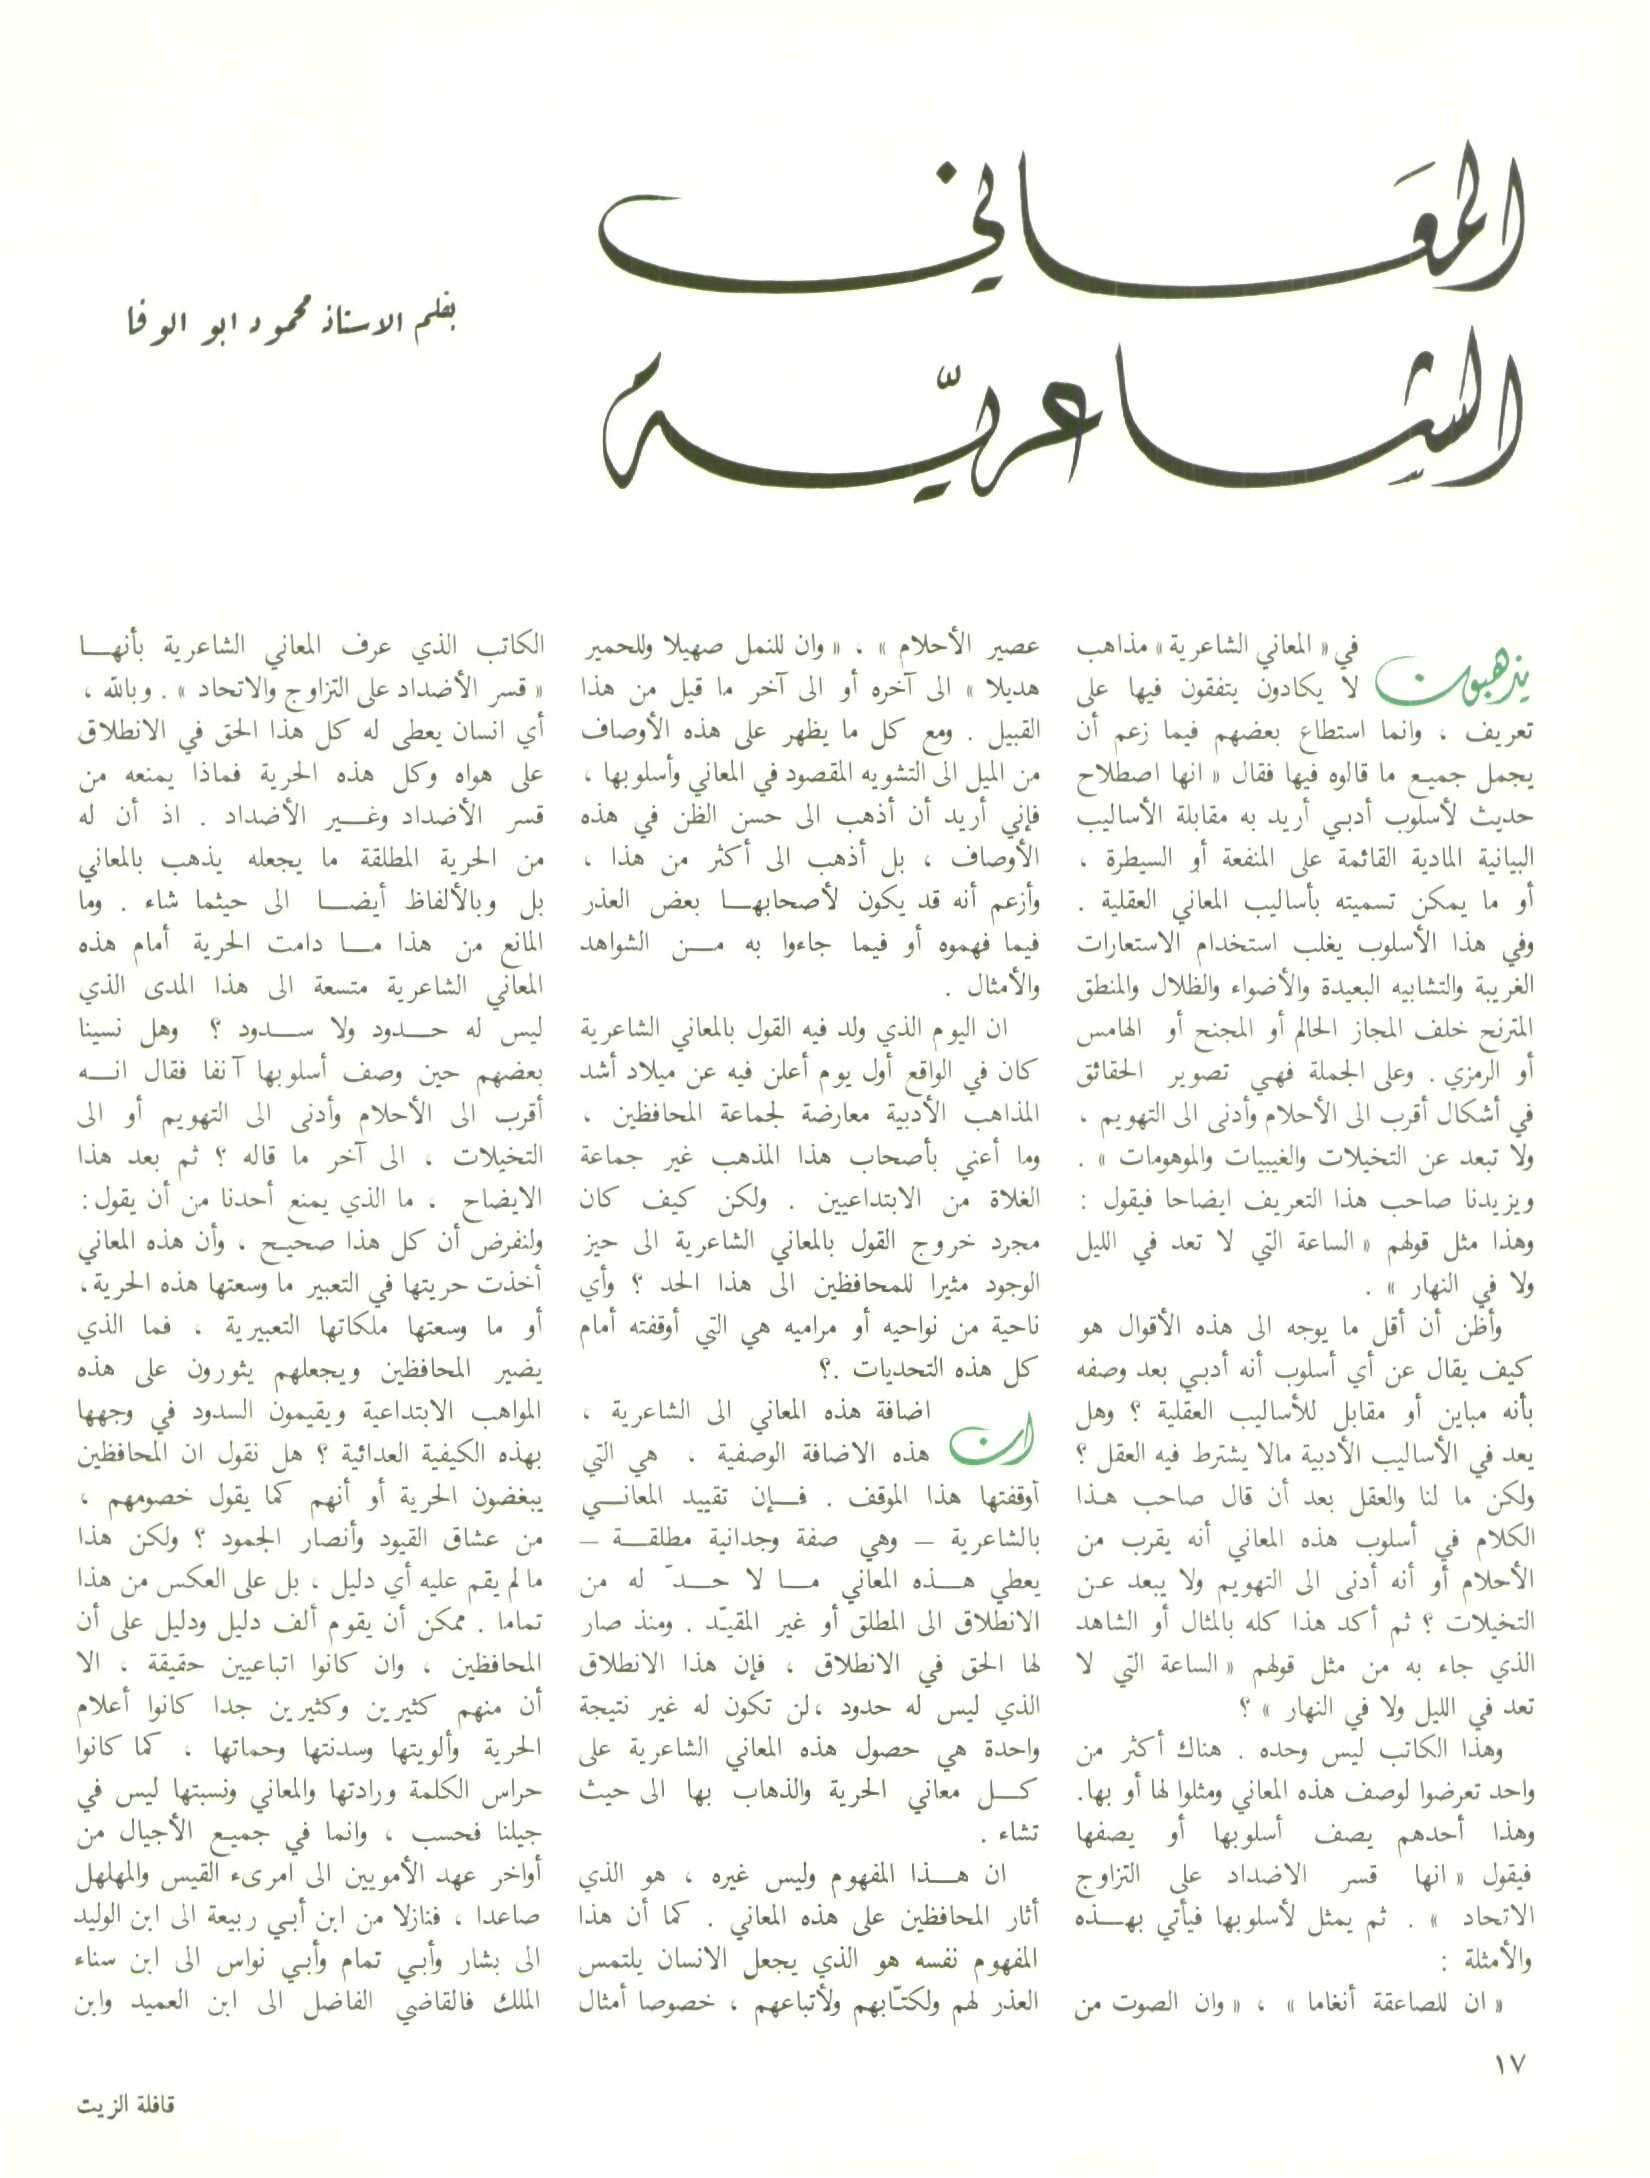 المعَاني
الشاعريّة
بقلم الاستاذ محمود ابو الوفا
يذهبون في « المعاني الشاعرية » مذاهب
لا يكادون يتفقون فيها على
تعريف ، وانما استطاع بعضهم فيما زعم أن
يجمل جميع ما قالوه فيها فقال « انها اصطلاح
حديث لأسلوب أدبي أريد به مقابلة الأساليب
البيانية المادية القائمة على المنفعة أو السيطرة ،
أو ما يمكن تسميته بأساليب المعاني العقلية .
وفي هذا الأسلوب يغلب استخدام الاستعارات
الغريبة والتشابيه البعيدة والأضواء والظلال والمنطق
المترنح خلف المجاز الحالم أو المجنح أو الهامس
أو الرمزي . وعلى الجملة فهي تصوير الحقائق
في أشكال أقرب الى الأحلام وأدنى الى التهويم ،
ولا تبعد عن التخيلات والغيبيات والموهومات » .
ويزيدنا صاحب هذا التعريف ايضاحا فيقول :
وهذا مثل قولهم « الساعة التي لا تعد في الليل
ولا في النهار » .
وأظن أن أقل ما يوجه الى هذه الأقوال هو
كيف يقال عن أي أسلوب أنه أدبي بعد وصفه
بأنه مباين أو مقابل للأساليب العقلية ؟ وهل
يعد في الأساليب الأدبية مالا يشترط فيه العقل ؟
ولكن ما لنا والعقل بعد أن قال صاحب هذا
الكلام في أسلوب هذه المعاني أنه يقرب من
الأحلام أو أنه أدنى الى التهويم ولا يبعد عن
التخيلات ؟ ثم أكد هذا كله بالمثال أو الشاهد
الذي جاء به من مثل قولهم « الساعة التي لا
تعد في الليل ولا في النهار » ؟
وهذا الكاتب ليس وحده . هناك أكثر من
واحد تعرضوا لوصف هذه المعاني ومثلوا لها أو بها.
وهذا أحدهم يصف أسلوبها أو يصفها
فيقول « انها قسر الاضداد على التزاوج
الاتحاد » . ثم يمثل لأسلوبها فيأتي بهذه
والأمثلة :
« ان للصاعقة أنغاما » ، « وان الصوت من
عصير الأحلام » ، « وان للنمل صهيلا وللحمير
هديلا » الى آخره أو الى آخر ما قيل من هذا
القبيل . ومع كل ما يظهر على هذه الأوصاف
من الميل الى التشويه المقصود في المعاني وأسلوبها ،
فإني أريد أن أذهب الى حسن الظن في هذه
الأوصاف ، بل أذهب الى أكثر من هذا ،
وأزعم أنه قد يكون لأصحابها بعض العذر
فيما فهموه أو فيما جاءوا به من الشواهد
والأمثال .
ان اليوم الذي ولد فيه القول بالمعاني الشاعرية
كان في الواقع أول يوم أعلن فيه عن ميلاد أشد
المذاهب الأدبية معارضة لجماعة المحافظين ،
وما أعني بأصحاب هذا المذهب غير جماعة
الغلاة من الابتداعيين . ولكن كيف كان
مجرد خروج القول بالمعاني الشاعرية الى حيز
الوجود مثيرا للمحافظين الى هذا الحد ؟ وأي
ناحية من نواحيه أو مراميه هي التي أوقفته أمام
كل هذه التحديات .؟
ان اضافة هذه المعاني الى الشاعرية ،
هذه الاضافة الوصفية ، هي التي
أوقفتها هذا الموقف . فإن تقييد المعاني
بالشاعرية – وهي صفة وجدانية مطلقة –
يعطي هذه المعاني ما لا حدّ له من
الانطلاق الى المطلق أو غير المقيّد . ومنذ صار
لها الحق في الانطلاق ، فإن هذا الانطلاق
الذي ليس له حدود ،لن تكون له غير نتيجة
واحدة هي حصول هذه المعاني الشاعرية على
كل معاني الحرية والذهاب بها الى حيث
تشاء .
ان هذا المفهوم وليس غيره ، هو الذي
أثار المحافظين على هذه المعاني . كما أن هذا
المفهوم نفسه هو الذي يجعل الانسان يلتمس
العذر لهم ولكتّابهم ولأتباعهم ، خصوصا أمثال
الكاتب الذي عرف المعاني الشاعرية بأنها
« قسر الأضداد على التزاوج والاتحاد » . وبالله ،
أي انسان يعطى له كل هذا الحق في الانطلاق
على هواه وكل هذه الحرية فماذا يمنعه من
قسر الأضداد وغير الأضداد . اذ أن له
من الحرية المطلقة ما يجعله يذهب بالمعاني
بل وبالألفاظ أيضا الى حيثما شاء . وما
المانع من هذا ما دامت الحرية أمام هذه
المعاني الشاعرية متسعة الى هذا المدى الذي
ليس له حدود ولا سدود ؟ وهل نسينا
بعضهم حين وصف أسلوبها آنفا فقال انه
أقرب الى الأحلام وأدنى الى التهويم أو الى
التخيلات ، الى آخر ما قاله ؟ ثم بعد هذا
الايضاح ، ما الذي يمنع أحدنا من أن يقول :
ولنفرض أن كل هذا صحيح ، وأن هذه المعاني
أخذت حريتها في التعبير ما وسعتها هذه الحرية ،
أو ما وسعتها ملكاتها التعبيرية ، فما الذي
يضير المحافظين ويجعلهم يثورون على هذه
المواهب الابتداعية ويقيمون السدود في وجهها
بهذه الكيفية العدائية ؟ هل نقول ان المحافظين
يبغضون الحرية أو أنهم كما يقول خصومهم ،
من عشاق القيود وأنصار الجمود ؟ ولكن هذا
ما لم يقم عليه أي دليل ، بل على العكس من هذا
تماما . ممكن أن يقوم ألف دليل ودليل على أن
المحافظين ، وان كانوا اتباعيين حقيقة ، الا
أن منهم كثيرين وكثيرين جدا كانوا أعلام
الحرية وألويتها وسدنتها وحماتها ، كما كانوا
حراس الكلمة ورادتها والمعاني ونسبتها ليس في
جيلنا فحسب ، وانما في جميع الأجيال من
أواخر عهد الأمويين الى امرىء القيس والمهلهل
صاعدا ، فنازلا من ابن أبي ربيعة الى ابن الوليد
الى بشار وأبي تمام وأبي نواس الى ابن سناء
الملك فالقاضي الفاضل الى ابن العميد وابن
١٧
قافلة الزيت